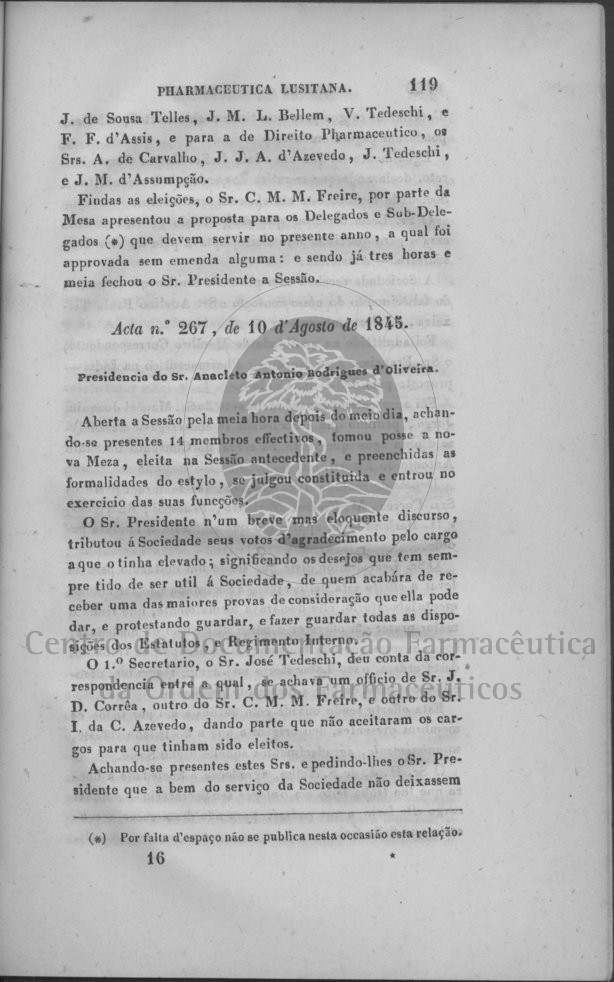 PHARMACEUTICA LUSITANA. 119
J. de Sousa Telles, J. M. L. Bellem, V. Tedeschi, e
F. F. d'Assis, e para a de Direito Pharmaceutico, os
Srs. A. de Carvalho, J. J. A. d'Azevedo, J. Tedeschi,
e J. M. d'Assumpção.
Findas as eleições, o Sr. C. M. M. Freire, por parte da
Mesa apresentou a proposta para os Delegados e Sub-Dele-
gados (*) que devem servir no presente anno, a qual foi
approvada sem emenda alguma: e sendo já tres horas e
meia fechou o Sr. Presidente a Sessão.
Acta n.º 267, de 10 d'Agosto de 1845.
Presidencia do Sr. Anacleto Antonio Rodrigues d'Oliveira.
Aberta a Sessão pela meia hora depois do meio dia, achan-
do-se presentes 14 membros effectivos, tomou posse a no-
va Meza, eleita na Sessão antecedente, e preenchidas as
formalidades do estylo, se julgou constituida e entrou no
exercicio das suas funcções.
O Sr. Presidente n'um breve mas eloquente discurso,
tributou á Sociedade seus votos d'agradecimento pelo cargo
a que o tinha elevado; significando os desejos que tem sem-
pre tido de ser util á Sociedade, de quem acabára de re-
ceber uma das maiores provas de consideração que ella pode
dar, e protestando guardar, e fazer guardar todas as dispo-
sições dos Estatutos, e Regimento Interno.
Centro de Documentação Farmacêutica
O 1.º Secretario, o Sr. José Tedeschi, deu conta da cor-
respondencia entre a qual, se achava um officio de Sr. J.
da Ordem dos Farmacêuticos
D. Corrêa, outro do Sr. C. M. M. Freire, e outro do Sr.
I. da C. Azevedo, dando parte que não aceitaram os car-
gos para que tinham sido eleitos.
Achando-se presentes estes Srs. e pedindo-lhes o Sr. Pre-
sidente que a bem do serviço da Sociedade não deixassem
(*) Por falta d'espaço não se publica nesta occasião esta relação.
16 *